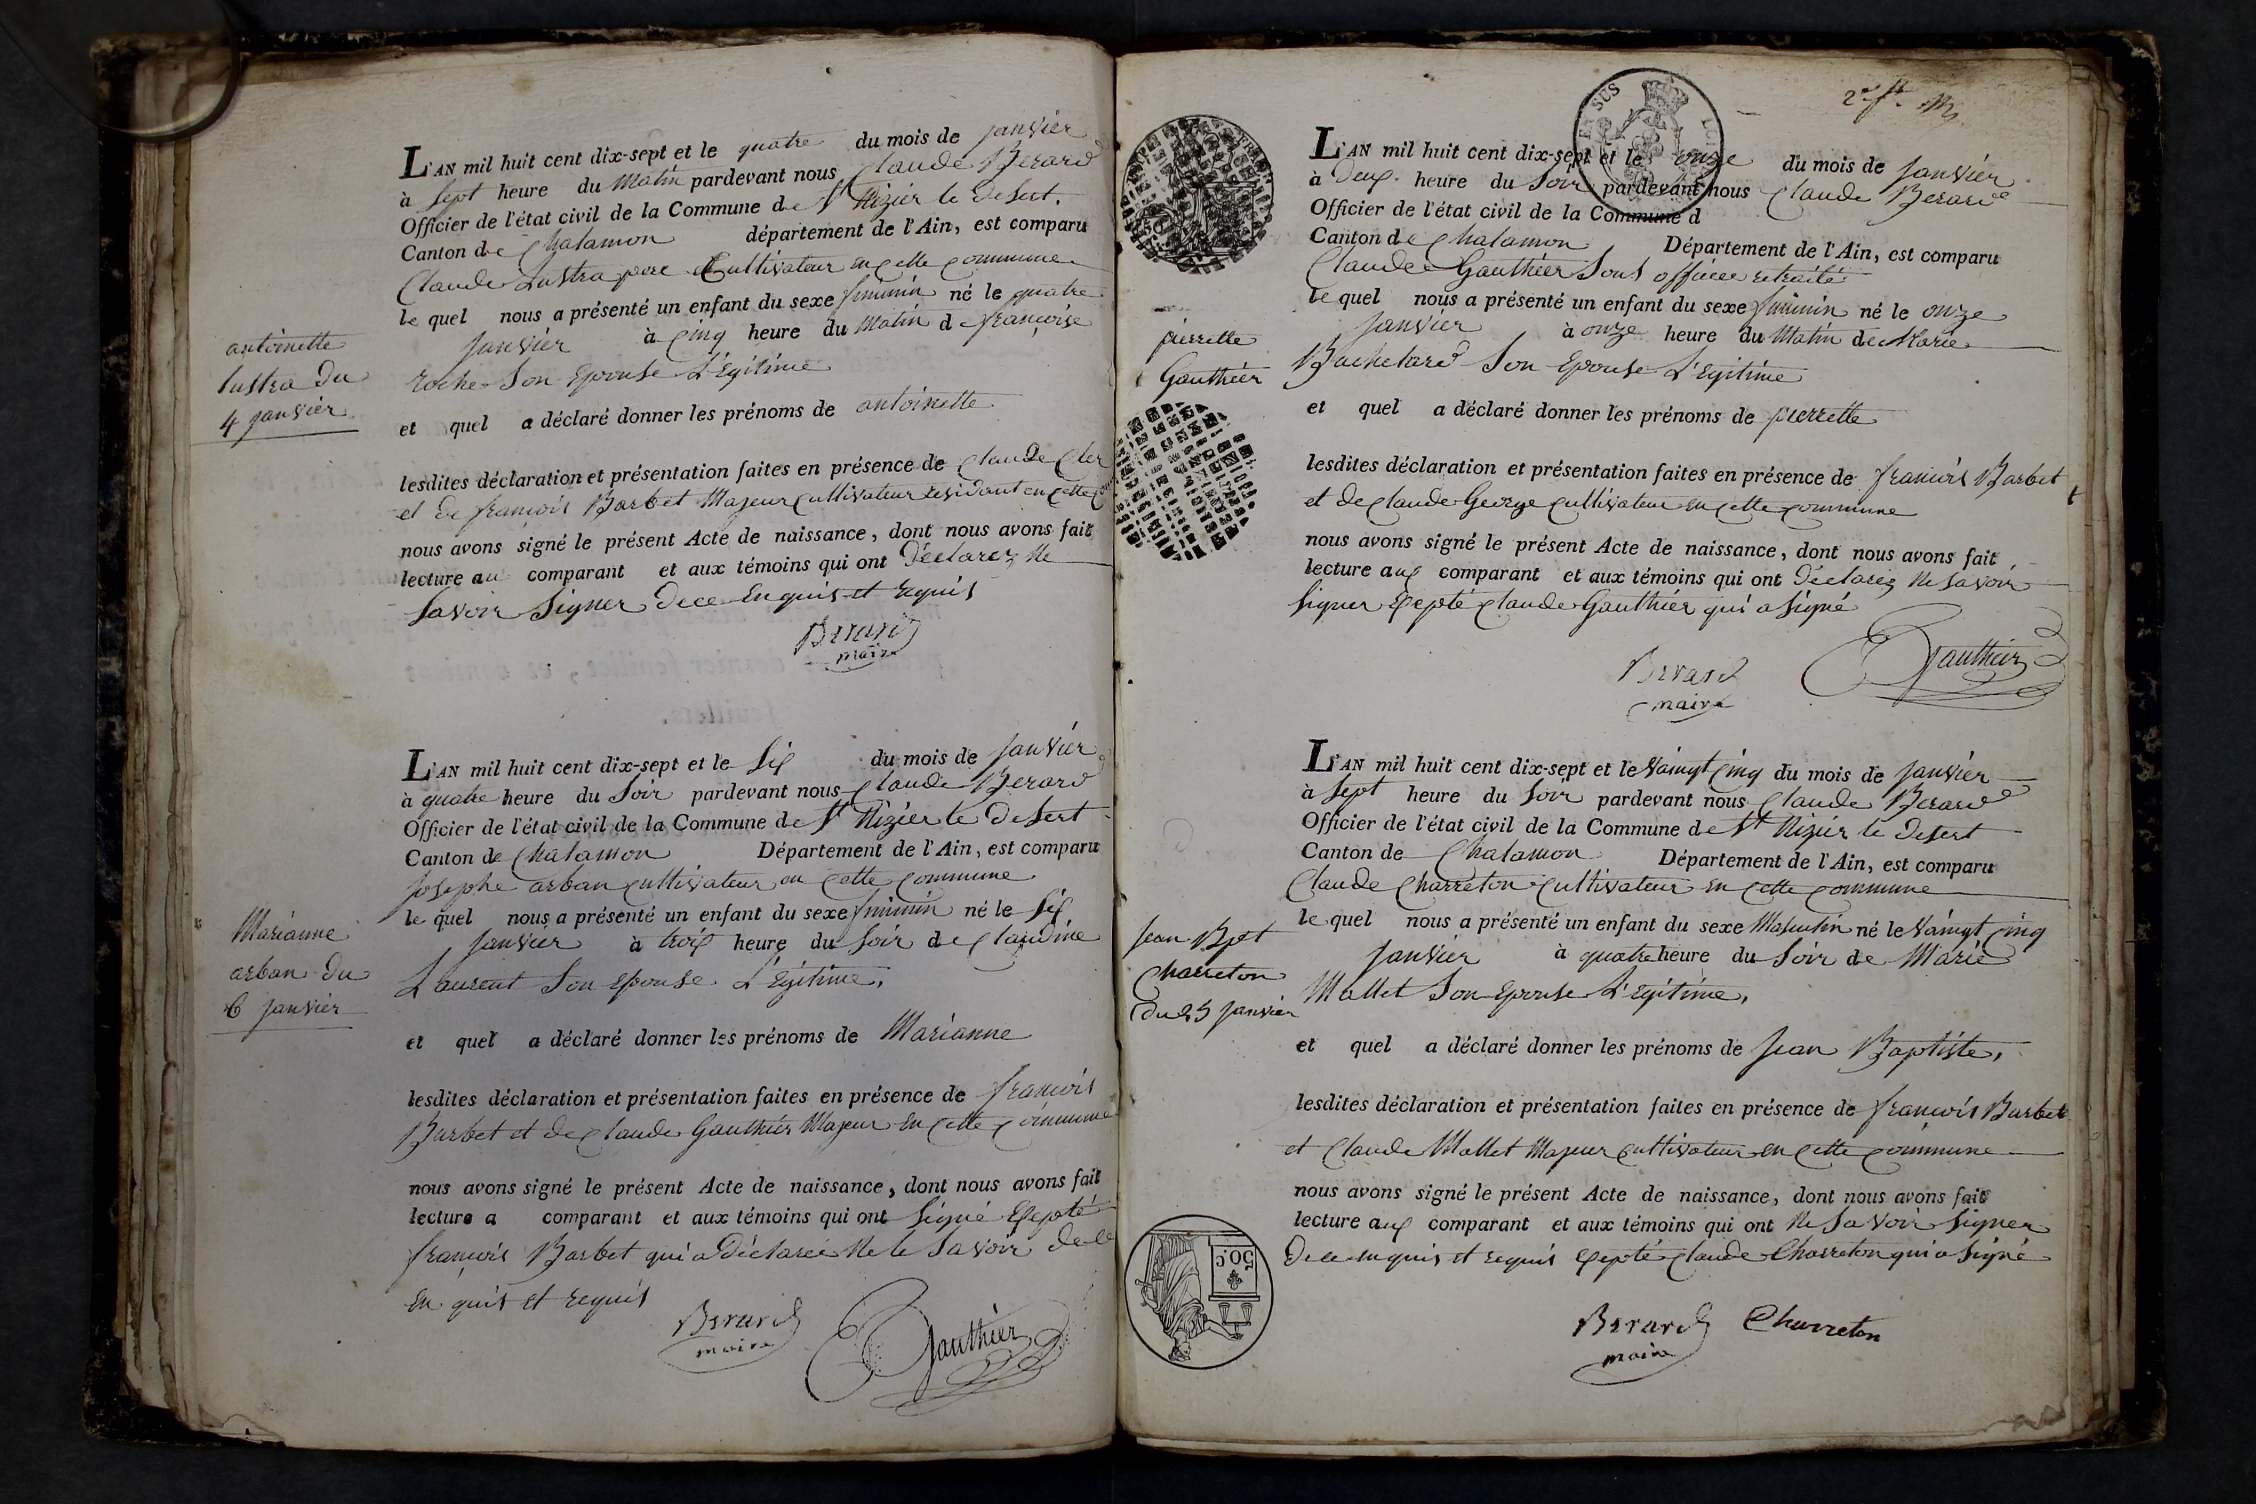 L'AN mil huit cent dix-sept et le quatre du mois de janvier
à sept heure du Matin pardevant nous Claude Berard
Officier de l'état civil de la Commune de St Nizier le Desert.
Canton de Chalamon département de l'Ain, est comparu
Claude Lustra pere Cultivateur en cette commune
le quel nous a présenté un enfant du sexe feminin né le quatre
janvier à cinq heure du Matin de françoise
roche Son Epouse L'Egitime
antoinette
lustra du
4 janvier
et quel a déclaré donner les prénoms de antoinette
lesdites déclaration et présentation faites en présence de Claude Cler
et de françois Barbet Majeur cultivateur residant en cette
nous avons signé le présent Acte de naissance, dont nous avons fait
lecture au comparant et aux témoins qui ont Déclarez Ne
Savoir Signer dece Enquis et Requis
Berard
maire
L'AN mil huit cent dix-sept et le Six du mois de Janvier
à quatre heure du Soir pardevant nous Claude Berard
Officier de l'état civil de la Commune de St Nizier le Desert
Canton de Chalamon Département de l'Ain, est comparu
Josephe arban cultivateur en cette commune
le quel nous a présenté un enfant du sexe feminin né le Six
Janvier à trois heure du Soir de Claudine
Laurent Son epouse L'Egitime,
Marianne
arban du
6 janvier
et quel a déclaré donner les prénoms de Marianne
lesdites déclaration et présentation faites en présence de françois
Barbet et de Claude Gauthier Majeur en cette commune
nous avons signé le présent Acte de naissance, dont nous avons fait
lecture a comparant et aux témoins qui ont Signé Exepté
françois Barbet qui a Déclarée Ne le Savoir de ce
en quis et requis
Berard
maire
Gauthier
2e ft.
L'AN mil huit cent dix-sept et le onze du mois de Janvier
à deux heure du Soir pardevant nous Claude Berard
Officier de l'état civil de la Commune d
Canton de Chalamon Département de l'Ain, est comparu
Claude Gauthier Sous officier retraité
le quel nous a présenté un enfant du sexe feminin né le onze
Janvier à onze heure du Matin de Marie
Bachelard Son Epouse L'Egitime
pierrette
Gauthier
et quel a déclaré donner les prénoms de pierrette
lesdites déclaration et présentation faites en présence de françois Barbet
et de Claude George cultivateur en cette commune
nous avons signé le présent Acte de naissance, dont nous avons fait
lecture aux comparant et aux témoins qui ont Déclarez Ne savoir
Signer Exepté Claude Gauthier qui a Signé
Berard
maire
Gauthier
L'AN mil huit cent dix-sept et le Vaingt cinq du mois de janvier
à Sept heure du Soir pardevant nous Claude Berard
Officier de l'état civil de la Commune de St Nizier le Desert
Canton de Chalamon Département de l'Ain, est comparu
Claude Charreton Cultivateur en cette commune
le quel nous a présenté un enfant du sexe Masculin né le Vaingt cinq
Janvier à quatre heure du Soir de Marie
Mallet Son Epouse L'Egitime,
Jean Bpt
Charreton
du 25 Janvier
et quel a déclaré donner les prénoms de Jean Baptiste,
lesdites déclaration et présentation faites en présence de françois Barbet
et Claude Mallet Majeur cultivateur en cette commune
nous avons signé le présent Acte de naissance, dont nous avons fait
lecture aux comparant et aux témoins qui ont Ne Savoir Signer
De ce enquis et requis Exepté Claude Charreton qui a Signé
50 C.
Berard
maire
Charreton